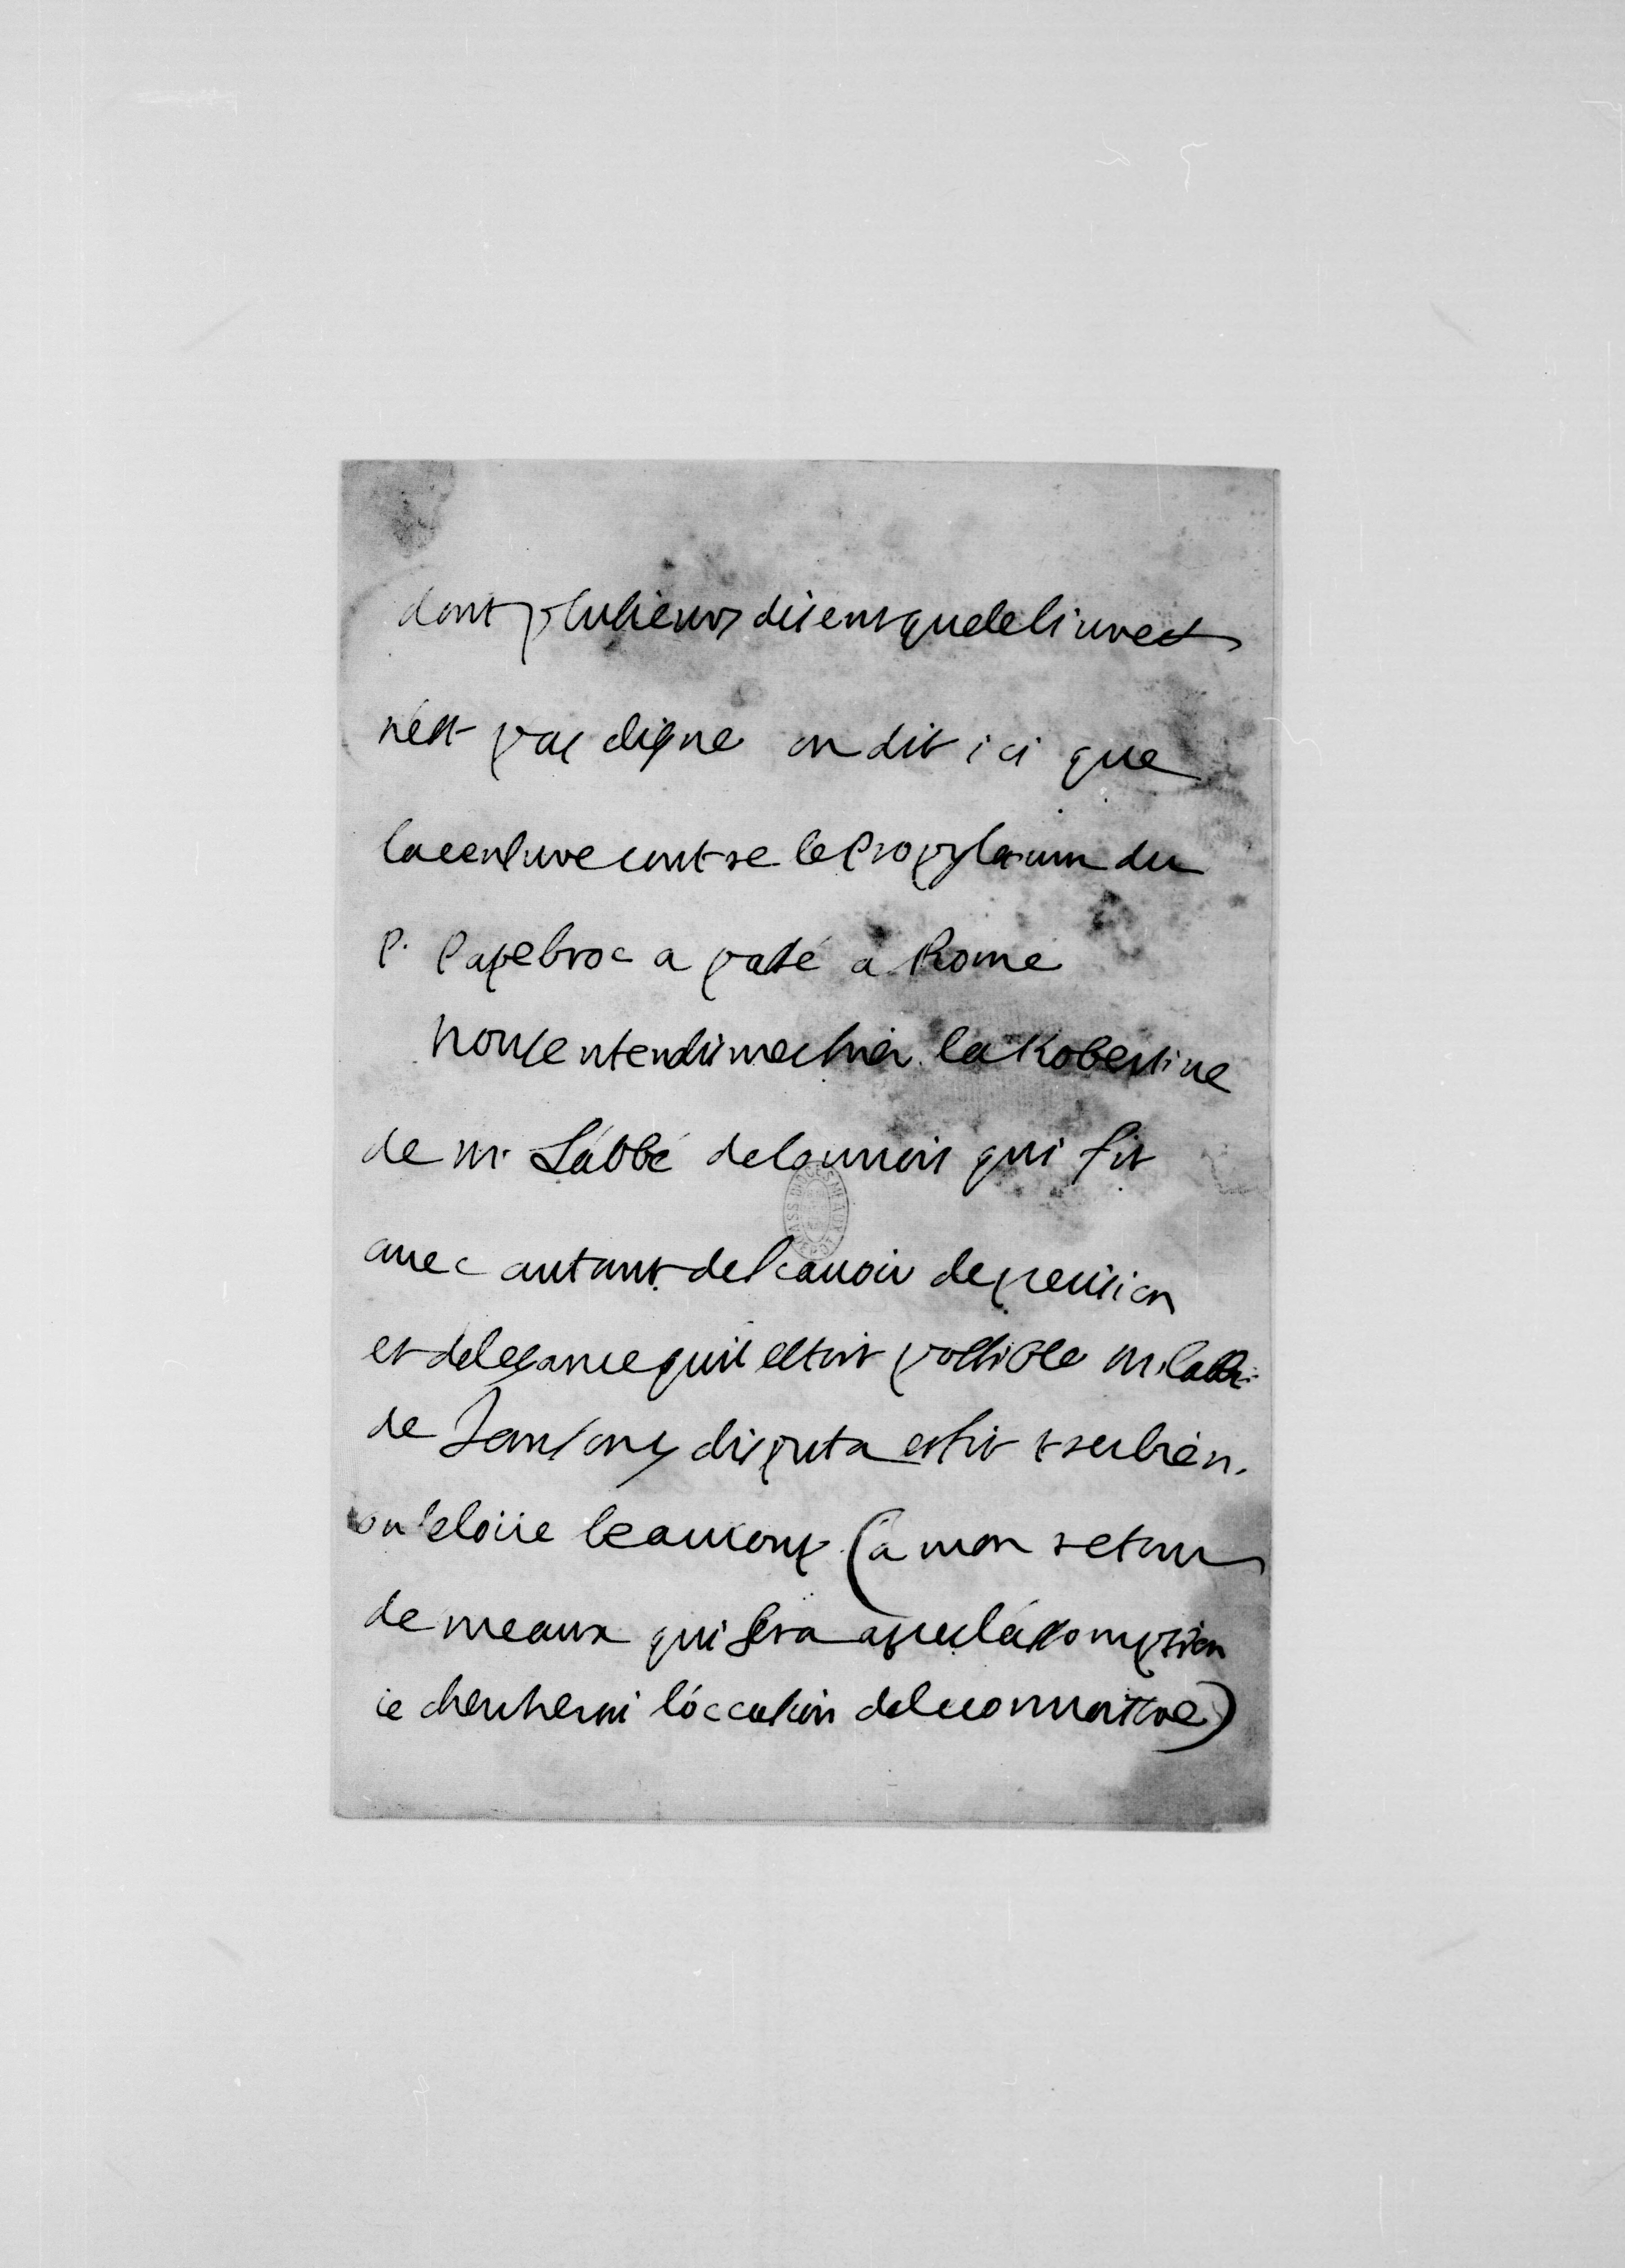 dont plusieurs disent que le livre
n'est pas digne on dit ici que
la censure contre le Propylaeum du
P. Papebroc a passé à Rome
nous entendimes hier la Robertine
de Mr L'abbé de louuois qui fit
auec autant de scauoir de precision
et delegance quil estoit possible M. labbé
de Jansons disputa et fit tres bien.
on le loue beaucoup (à mon retour
de meaux qui sera apres lascomption
ie chercherai l'occasion de le connoittre)